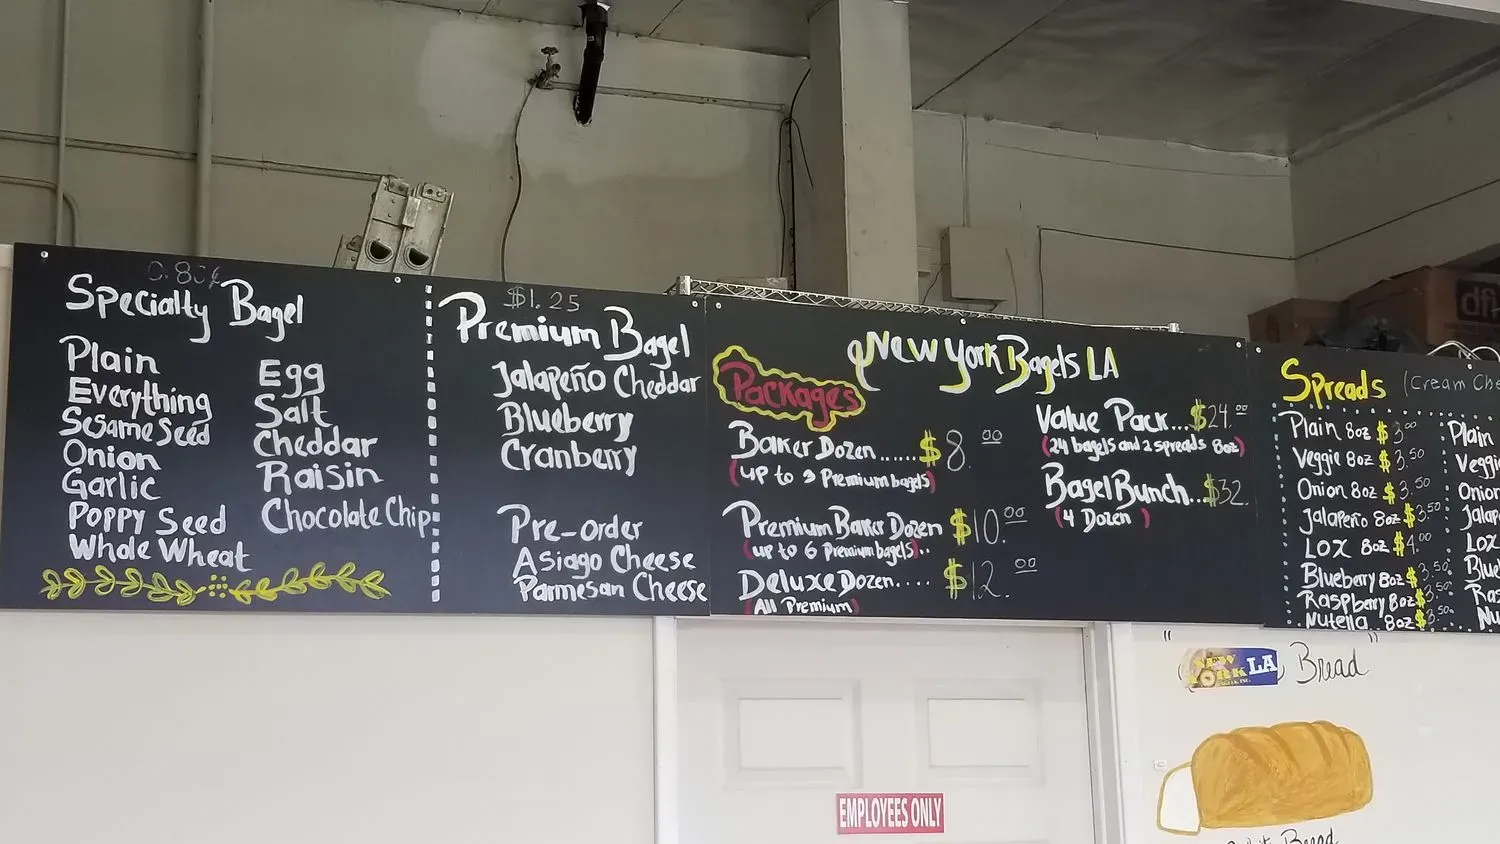 0.80¢
Specialty Bagel
Plain
Everything
Sesame Seed
Onion
Garlic
Poppy Seed
Whole Wheat
Egg
Salt
Cheddar
Raisin
Chocolate Chip
$1.25
Premium Bagel
Jalapeño Cheddar
Blueberry
Cranberry
Pre-order
Asiago Cheese
Parmesan Cheese
New York Bagels LA
Packages
Baker Dozen...... $8.00
(up to 3 Premium bagels)
Premium Baker Dozen $10.00
(up to 6 Premium bagels)..
Deluxe Dozen.... $12.00
(All Premium)
Value Pack...$24.00
(24 bagels and 2 spreads 8oz)
Bagel Bunch...$32.
(4 Dozen )
Spreads (Cream Che
Plain 8oz $3.00
Veggie 8oz $3.50
Onion 8oz $3.50
Jalapeño 8oz $3.50
Lox 8oz $4.00
Blueberry 8oz $3.50
Raspberry 8oz $3.50
Nutella 8oz $3.50
Plain
Veggi
Onion
Jalap
Lox
Blue
Ras
Nu
dfi
" "
NEW YORK LA Bread
EMPLOYEES ONLY
Bread